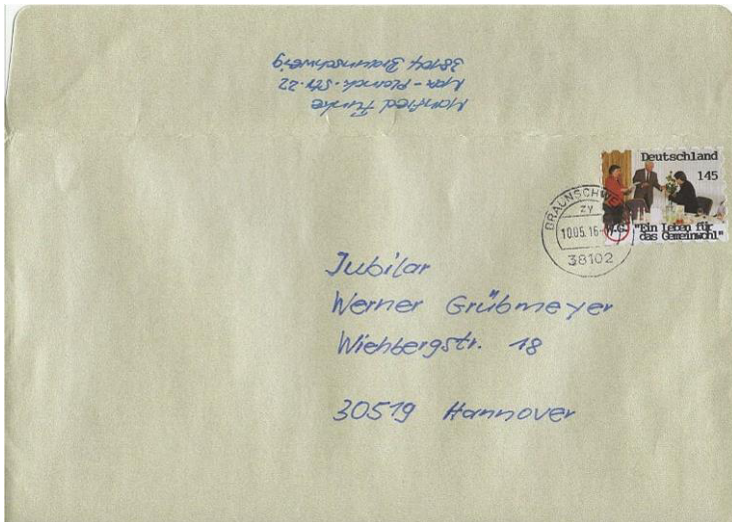 Manfred Funke
Max-Planck-Str. 22
38104 Braunschweig
Deutschland
145
"Ein Leben für
das Gemeinwohl"
BRAUNSCHWE
zy
10.05.16
38102
Jubilar
Werner Grübmeyer
Wiehbergstr. 18
30519 Hannover